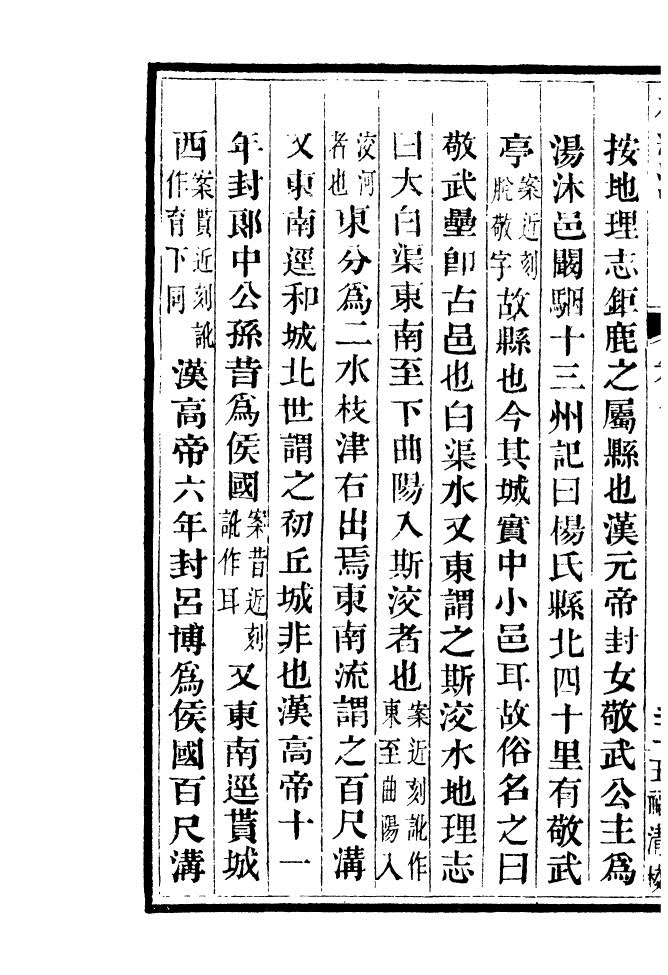 按地理志鉅鹿之屬縣也漢元帝封女敬武公主爲
湯沐邑闞駰十三州記曰楊氏縣北四十里有敬武
亭案近刻脫敬字故縣也今其城實中小邑耳故俗名之曰
敬武壘卽古邑也白渠水又東謂之斯洨水地理志
曰大白渠東南至下曲陽入斯洨者也案近刻訛作東至曲陽入
洨河者也東分爲二水枝津右出焉東南流謂之百尺溝
又東南逕和城北世謂之初丘城非也漢高帝十一
年封郞中公孫昔爲侯國案昔近刻訛作耳又東南逕貰城
西案貰近刻訛作育下同漢高帝六年封呂博爲侯國百尺溝